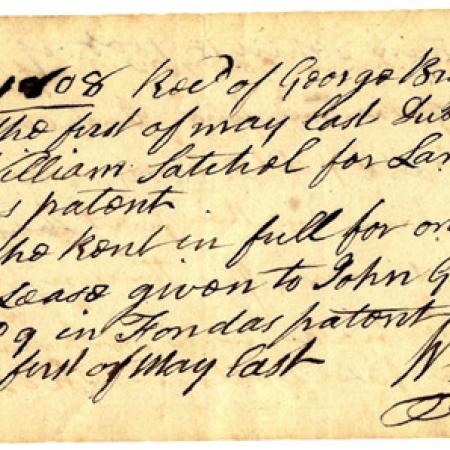 1808 Recd of George Br
the first of may last Du
William Satchel for Lan
s patent
he Rent in full for on
Lease given to John G
09 in Fondas patent
first of May last